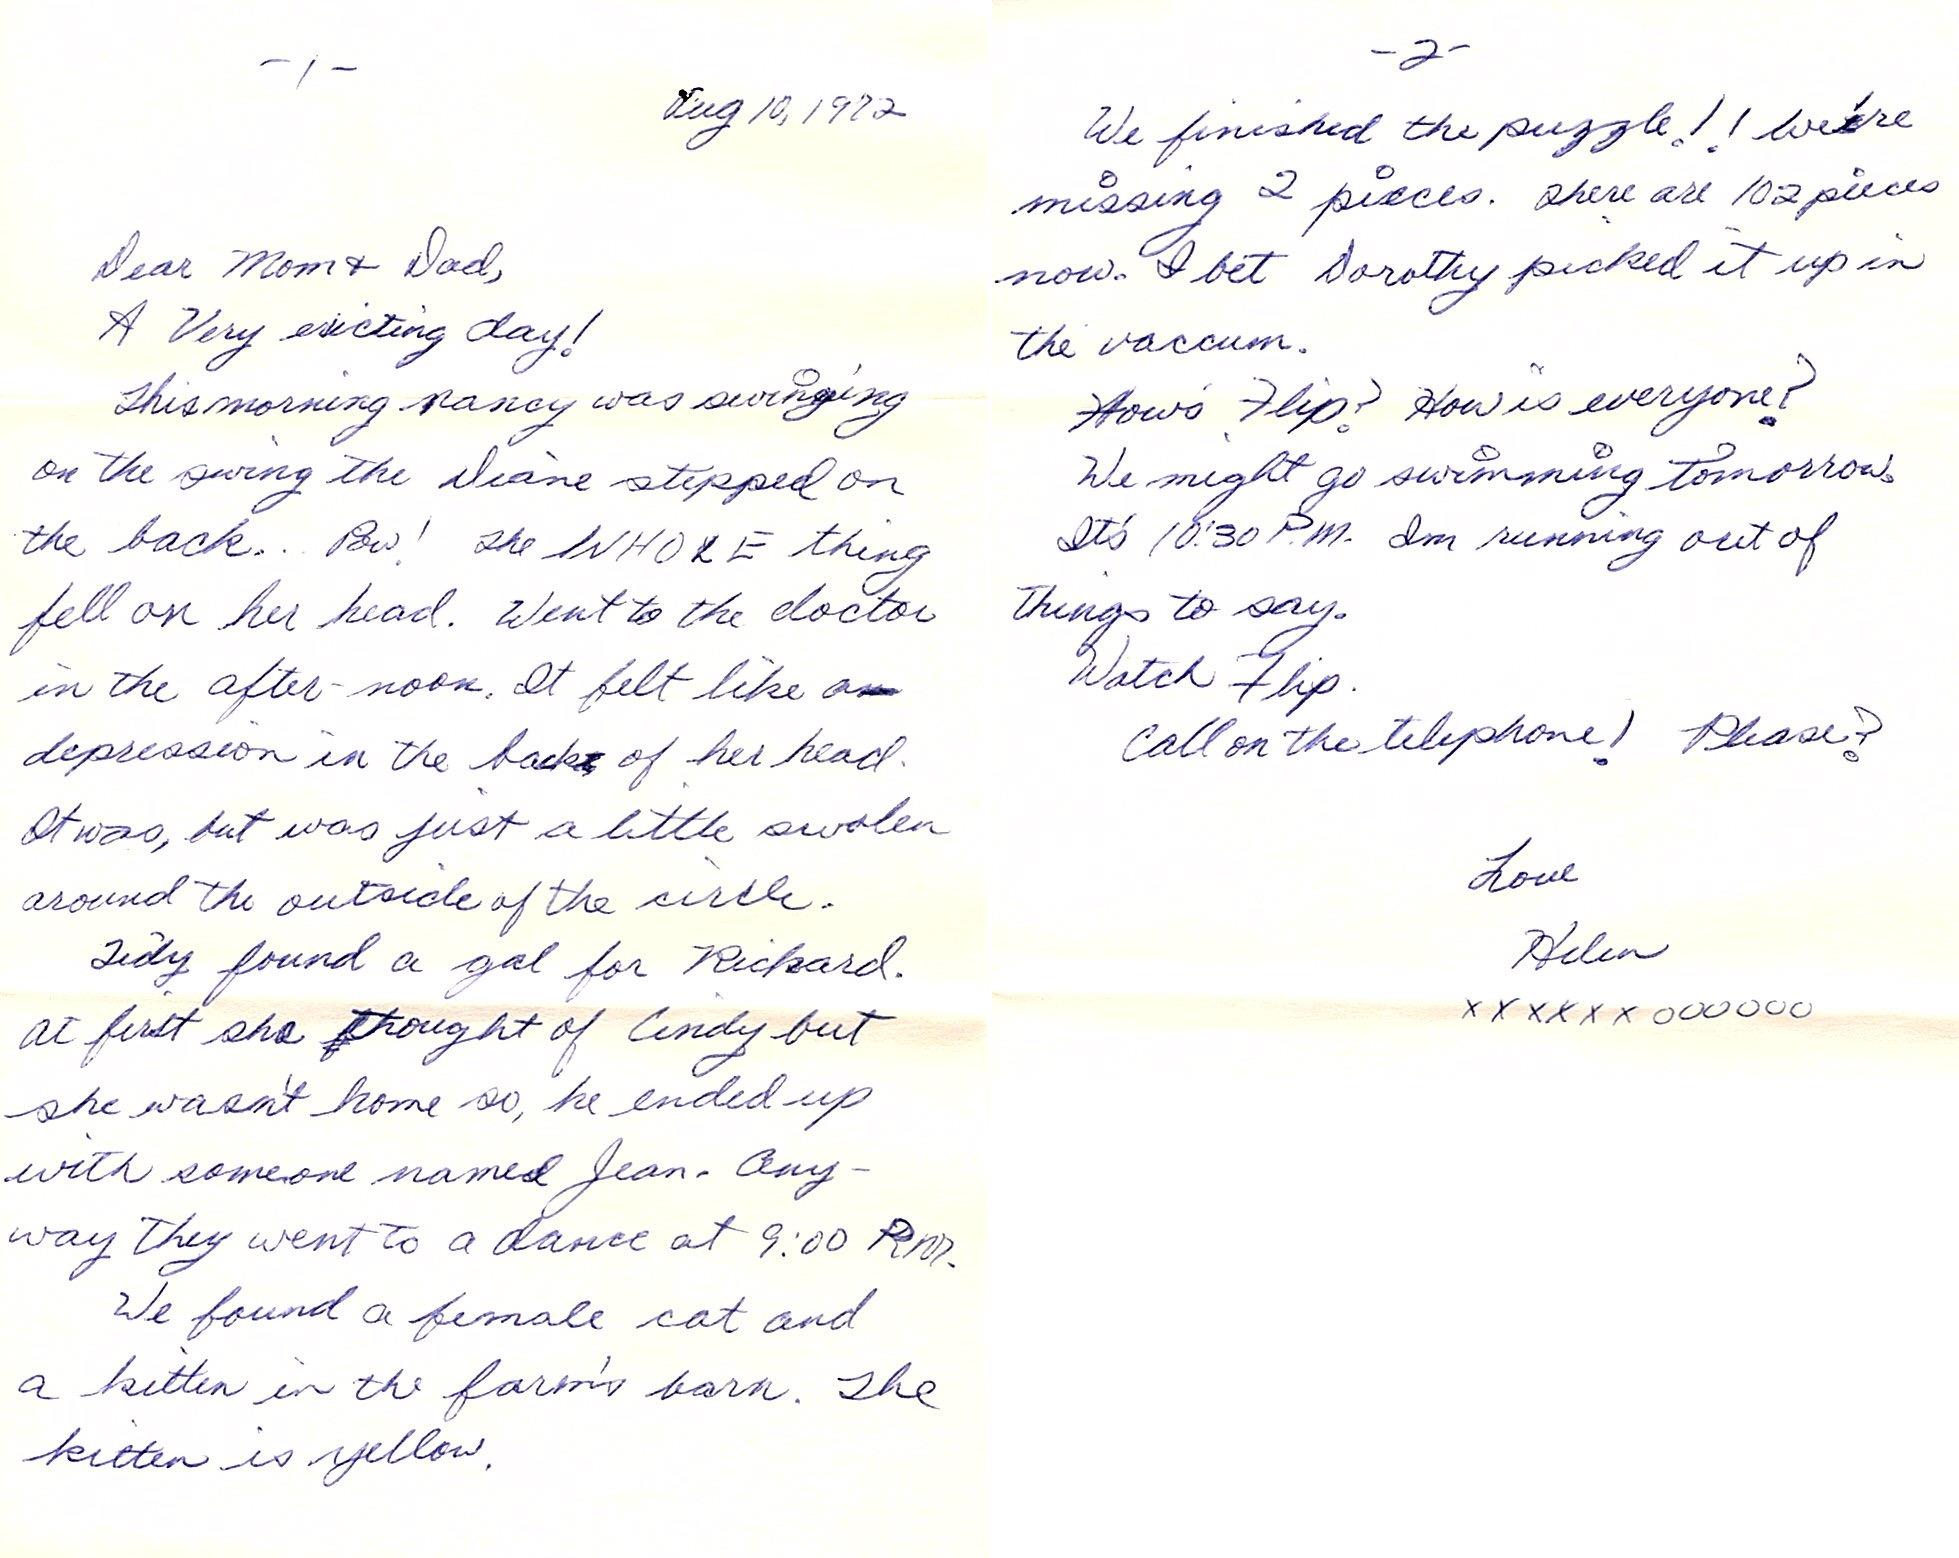 -1-
Aug 10, 1972
Dear Mom & Dad,
A Very exicting day!
This morning Nancy was swinging
on the swing the Diane stepped on
the back... Pow! The WHOLE thing
fell on her head. Went to the doctor
in the after-noon. It felt like a
depression in the back of her head.
It was, but was just a little swolen
around the outside of the circle.
Tidy found a gal for Richard.
At first she thought of Cindy but
she wasn't home so, he ended up
with someone named Jean. Any-
way they went to a dance at 9:00 P.M.
We found a female cat and
a kitten in the farm's barn. The
kitten is yellow.
-2-
We finished the puzzle!! We're
missing 2 pieces. There are 102 pieces
now. I bet Dorothy picked it up in
the vaccum.
How's Flip? How is everyone?
We might go swimming tomorrow.
It's 10:30 P.M. Im running out of
things to say.
Watch Flip.
Call on the telephone! Please?
Love
Helen
xxxxxxoooooo